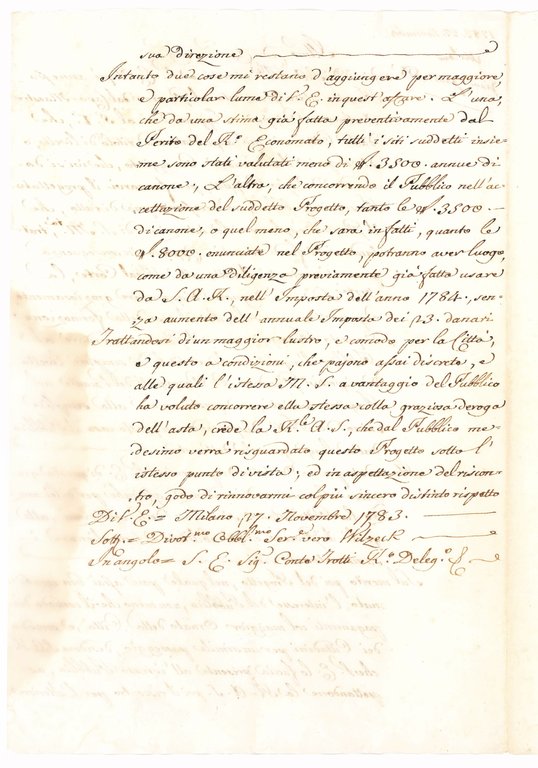 sua direzione
Intanto due cose mi restano d'aggiungere per maggiore,
e particolar lume di V. E. in quest'affare. L'una,
che da una stima già fatta preventivamente dal
Perito del R.º Economato, tutti i siti suddetti insie-
me sono stati valutati meno di 3500. annue di
canone, L'altra, che concorrendo il Pubblico nell'ac-
cettazione del suddetto Progetto, tanto le 3500. —
di canone, o quel meno, che sarà in fatti, quanto le
8000. enunciate nel Progetto, potranno aver luogo,
come da una diligenza previamente già fatta usare
da S. A. R., nell'Imposta dell'anno 1784., sen-
za aumento dell'annuale Imposta dei 23. danari
Trattandosi di un maggior lustro, e comodo per la Città,
e questo a condizioni, che pajono assai discrete, e
alle quali l'istessa M. S. a vantaggio del Pubblico
ha voluto concorrere ella stessa colla graziosa deroga
dell'asta, crede la R.le A. S., che dal Pubblico me-
desimo verrà risguardato questo Progetto sotto l'
istesso punto di vista; ed in aspettazione del riscon-
tro, godo di rinnovarmi col più sincero distinto rispetto
Di V. E. = Milano 17. Novembre 1783.
Sott.= Divot.mo Obbl.mo Ser.e vero Wilzeck
In angolo = S. E. Sig. Conte Trotti R.º Deleg.º